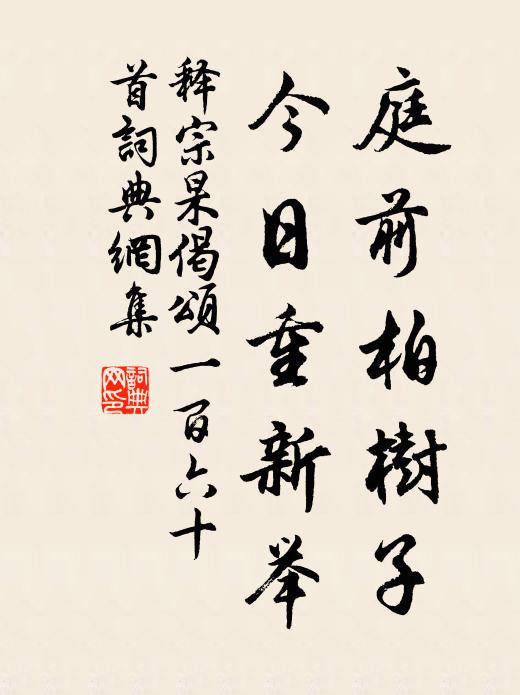 庭前柏樹子
今日重新举
释宗杲偈頌一百六十
首詞典網集
詞典网印